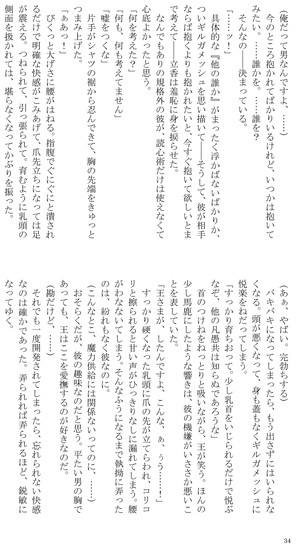 (俺だって男なんですよ、……)
今のところ抱かれてばかりいるけれど、いつかは抱いて
みたい。……誰かを。……誰を？
そんなの──決まっている。
「……ッ！」
具体的な『他の誰か』がまったく浮かばないばかりか、
ついギルガメッシュを思い描いて──そうして、彼が相手
ならば抱くよりも抱かれたいと、今すぐ抱いて欲しいとま
で考えて、　立香は羞恥に身を捩らせた。
なんでもありの規格外の彼が、読心術だけは使えなくて
心底よかったと思う。
「何を考えた？」
「何も、何も考えてません」
「嘘をつくな」
片手がシャツの裾から忍んできて、胸の先端をきゅっと
つまみ上げた。
「ぁあっ！」
びくっと大げさに腰がはねる。指腹でぐにぐにと潰され
るだけで明確な快感がこみあげて、爪先立ちになっては足
が震える。つねられて、引っ張られて。育むように乳頭の
側面を扱かれては、堪らなくなってかぶりを振った。
(あぁ、やばい。完勃ちする)
バキバキになってしまったら、もう出さずにはいられな
くなる。頭が悪くなって、身も蓋もなくギルガメッシュに
悦楽をねだってしまう。
「すっかり育ちおって。少し乳首をいじられるだけで悦ぶ
なぞ、他の凡愚共は知らぬであろうな」
首のつけねをねっとりと吸いながら、王が笑う。ほんの
少し馬鹿にしたような響きは、彼の機嫌がいささか悪いこ
とを表していた。
「王さまが、したんですよ、こんな、ぁ、ぅう……！」
すっかり硬くなった乳頭に爪の先が立てられ、コリコ
リと擦られると甘い声がひっきりなしに漏れてしまう。腰
がわななく。そんなふうになるまで執拗に弄った
のは、紛れもなく彼なのに。
(こんなとこ、魔力供給には関係ないってのに、……)
おそらくだが、彼の趣味なのだと思う。平たい男の胸で
あっても、王はここを愛撫するのが好きなのだ。
(勘だけど、……)
それでも一度開発されてしまったら、忘れられない快感
なのは確かであった。弄られれば弄られるほど、鋭敏に
なってゆく。
34